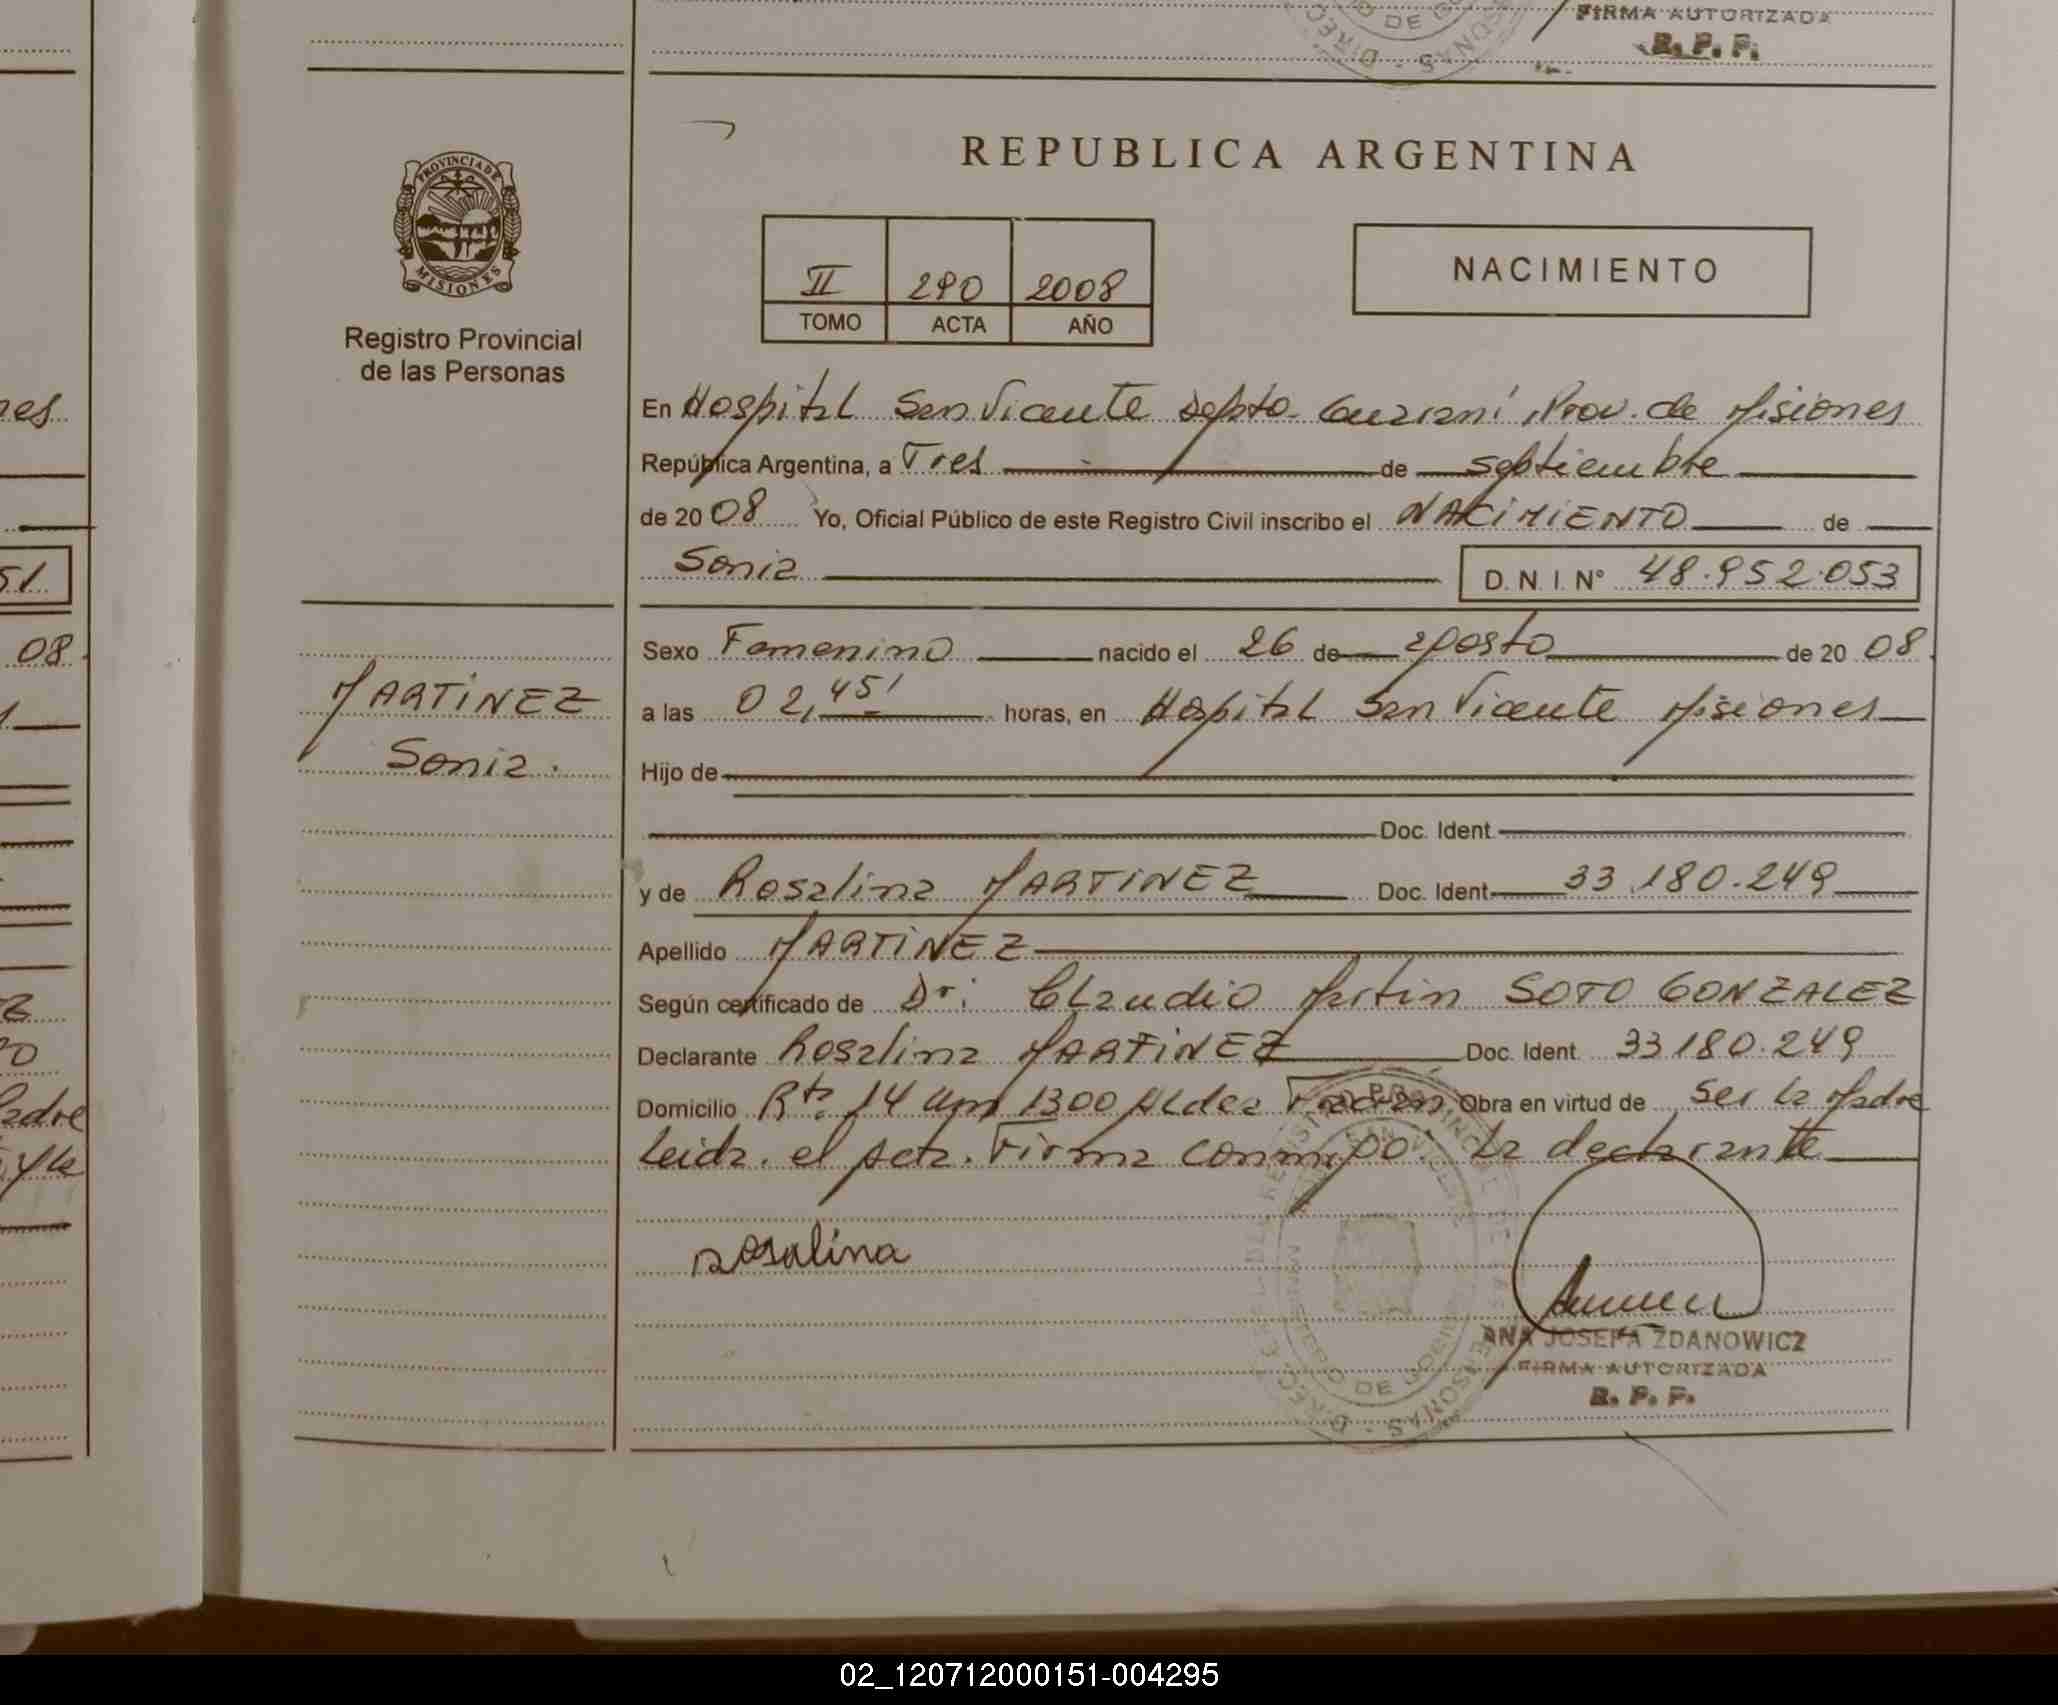 FIRMA AUTORIZADA
R. P. P.
REPUBLICA ARGENTINA
PROVINCIA DE MISIONES
Registro Provincial
de las Personas
II 290 2008
TOMO ACTA AÑO
NACIMIENTO
En Hospital San Vicente Depto. Guarani, Prov. de Misiones
República Argentina, a Tres de septiembre
de 20 08 Yo, Oficial Público de este Registro Civil inscribo el NACIMIENTO de
Sonia D. N. I. N° 48.952.053
Sexo Femenino nacido el 26 de agosto de 20 08
MARTINEZ
Sonia.
a las 02,45' horas, en Hospital San Vicente Misiones
Hijo de
Doc. Ident.
y de Rosalina MARTINEZ Doc. Ident. 33.180.249
Apellido MARTINEZ
Según certificado de Dr. Claudio Martin SOTO GONZALEZ
Declarante Rosalina MARTINEZ Doc. Ident. 33180.249
Domicilio Rta. 14 Km 1300 Aldea Obra en virtud de Ser la Madre
Leida. el Acta. Firma conmigo: la declarante
Rosalina
ANA JOSEFA ZDANOWICZ
FIRMA AUTORIZADA
R. P. P.
es
51
08
adre
y la
02_120712000151-004295